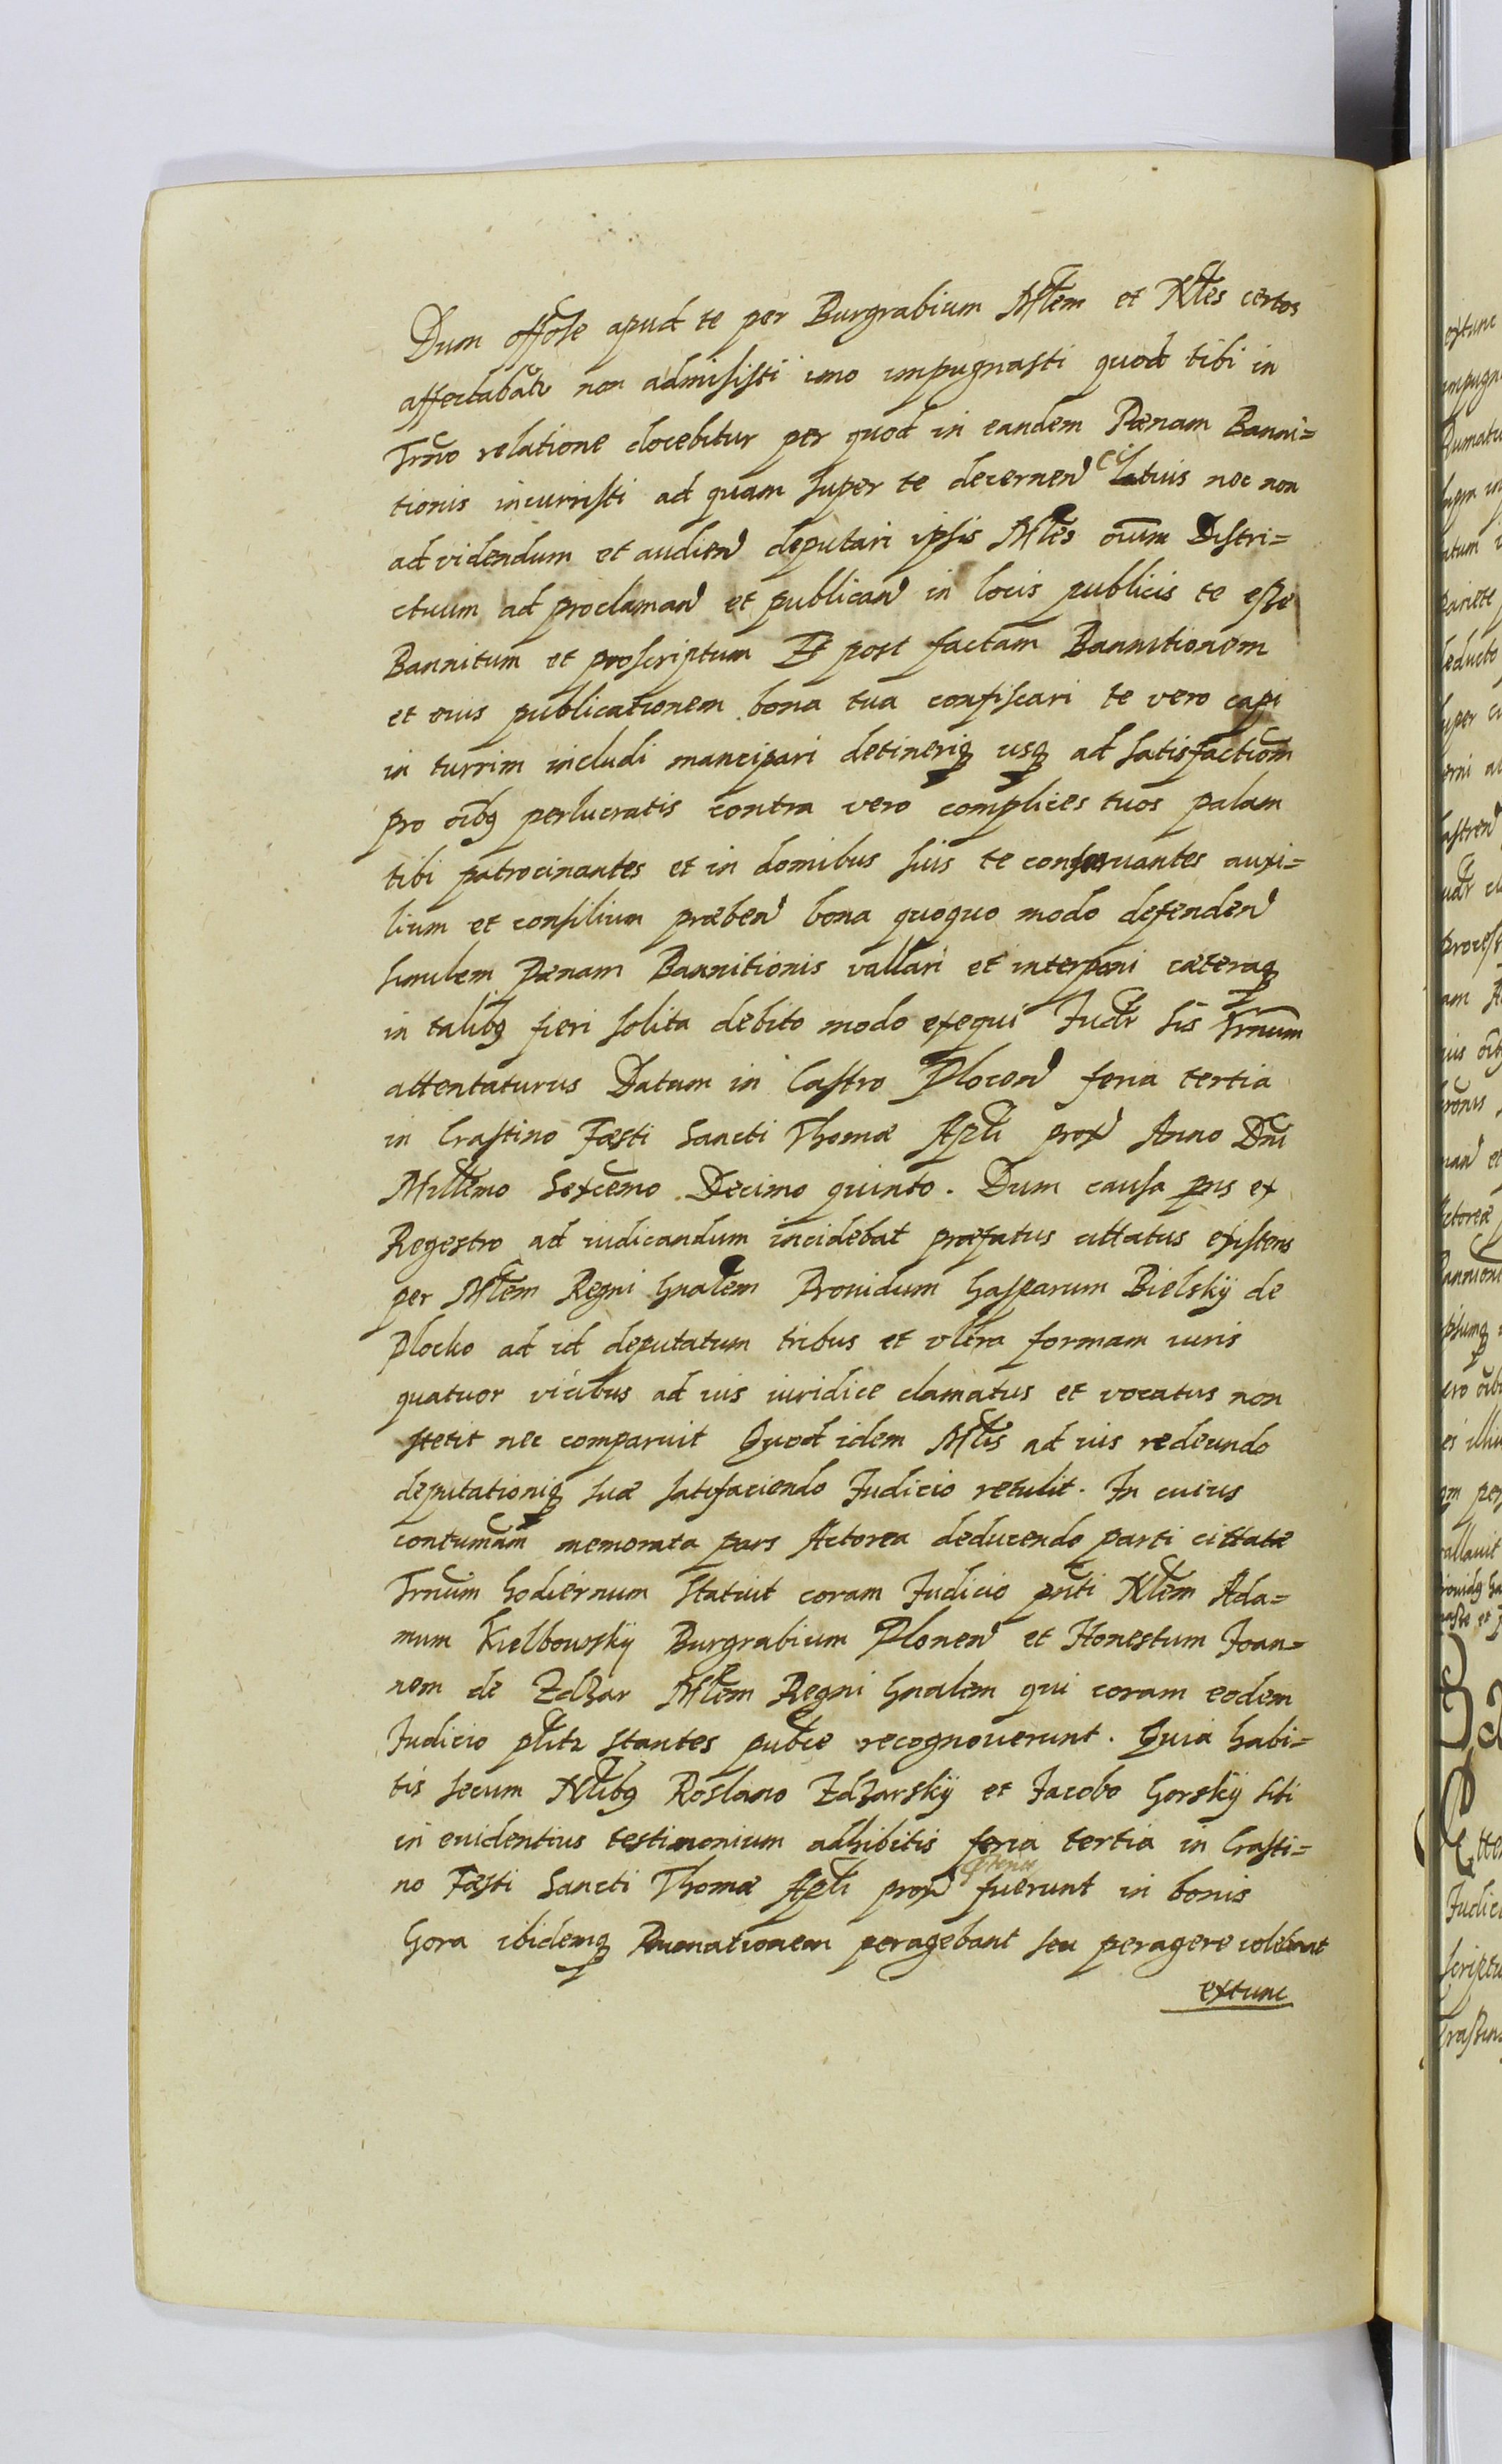 Dum offose apud te per Burgrabium Mtem et Ntes certos
affectabatr non admisisti imo impugnasti quod tibi in
Trno relatione docebitur per quod in eandem Pænam Banni=
tionis incurristi ad quam super te decernen latius nec non
ad videndum et audien deputari ipsis Mtes oium Distri=
ctuum ad proclaman et publican in locis publicis te esse
Bannitum et proscriptum Et post factam Bannitionem
et eius publicationem bona tua confiscari te vero capi
in turrim includi mancipari detineriq usq ad satisfactiom
pro oibq perlucratis contra vero complices tuos palam
tibi patrocinantes et in domibus suis te conseruantes auxi=
lium et consilium præben bona quoquo modo defenden
similem Pænam Bannitionis vallari et interponi cæteraq
in talibq fieri solita debito modo exequi Judr sis Trnum
attentaturus Datum in Castro Plocen feria tertia
in Crastino Fæsti Sancti Thomæ Apli prox Anno Dni
Millemo Sexcemo Decimo quinto. Dum causa pns ex
Regestro ad iudicandum incidebat præfatus cittatus existens
per Mtem Regni Gnalem Prouidum Gasparum Bielskÿ de
Plocko ad id deputatum tribus et vltra formam iuris
quatuor vicibus ad ius iuridice clamatus et vocatus non
stetit nec comparuit Quod idem Mtis ad ius redeundo
deputationiq suæ satisfaciendo Judicio retulit. In cuius
contumam memorata pars Actorea deducendo parti cittatæ
Trnum hodiernum statuit coram Judicio pnti Ntem Ada=
mum Kielbowskÿ Burgrabium Plonen et Honestum Joan=
nem de Zdzar Mtem Regni Gnalem qui coram eodem
Judicio plitr stantes pubce recognouerunt. Quia habi=
tis secum Ntibq Roslano Zdzarskÿ et Jacobo Gorskÿ sibi
in euidentius testimonium adhibitis feria tertia in Crasti=
no Fæsti Sancti Thomæ Apli prox fuerunt in bonis
Gora ibidemq Rumationem peragebant seu peragere volebant
extunc